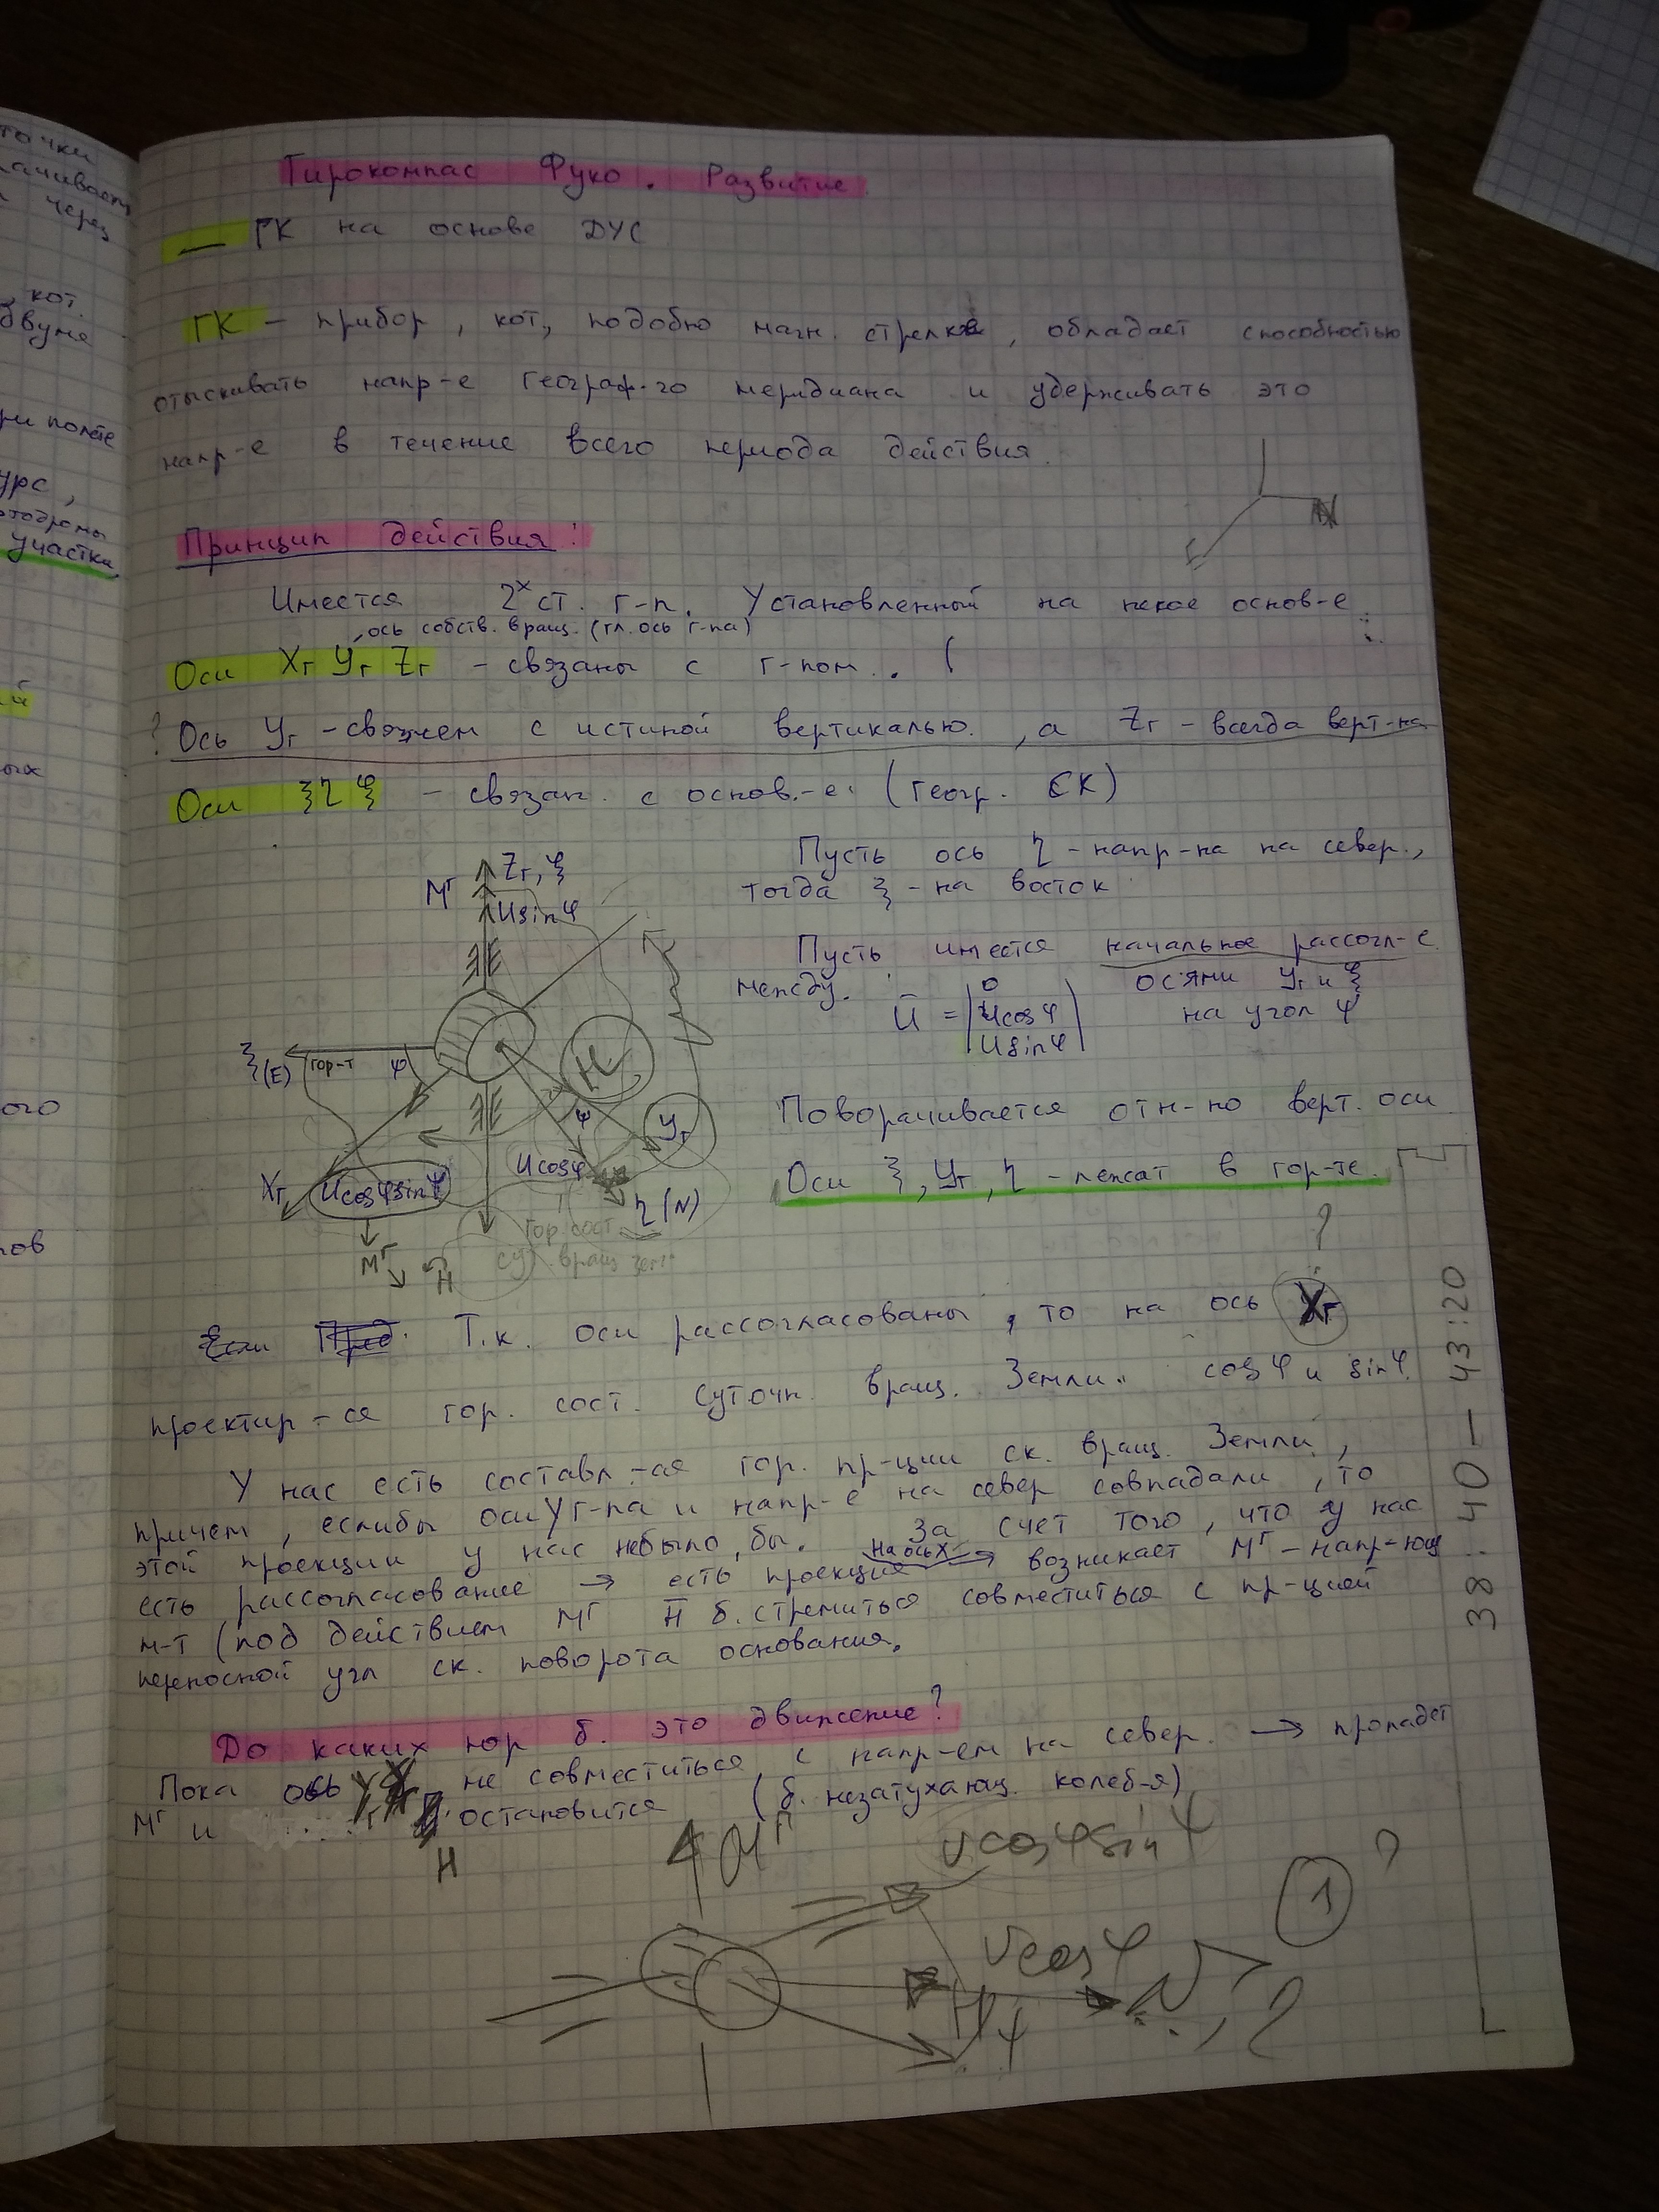 точки
кот.
двумя
при полёте
курс,
участки
Гирокомпас Фуко. Развитие.
— ГК на основе ДУС
ГК – прибор, кот., подобно магн. стрелке, обладает способностью
отыскивать напр-е географ-го меридиана и удерживать это
напр-е в течение всего периода действия.
N
E
Принцип действия:
Имеется 2х ст. г-п. Установленный на некое основ-е.
, ось собств. вращ. (гл. ось г-па)
Оси Xг Yг Zг – связаны с г-пом.. (
? Ось Yг – свяжем с истиной вертикалью, а Zг – всегда верт-на
Оси ξ η ζ – связан. с основ.-е. (геогр. СК)
Пусть ось η – напр-на на север.,
тогда ξ – на восток
Пусть имеется начальное рассогл-е
между осями Yг и ξ
на угол ψ
ū = | 0
Ucosφ
Usinφ |
Поворачивается отн-но верт. оси
Оси ξ, Yг, η – лежат в гор-те.
?
Zг, ζ
Mᴦ
Usinφ
ξ (E)
гор-т
ψ
H
ψ
Yг
Xг
Ucosφsinψ
Ucosφ
η (N)
Mᴦ
H
гор. сост.
сут. вращ. Земл.
Если Т.к. оси рассогласованы, то на ось Xг
проектир-ся гор. сост. суточн. вращ. Земли. cosφ и sinψ.
У нас есть составл-ая гор. пр-ции ск. вращ. Земли,
причем, еслибы оси Yг-па и напр-е на север совпадали, то
этой проекции у нас небыло бы. За счет того, что у нас
есть рассогласование → есть проекция на ось X → возникает Mᴦ – напр-ющ
м-т (под действием Mᴦ H̄ б. стремиться совместиться с пр-цией
переносной угл ск. поворота основания.
До каких пор б. это движение?
Пока ось Y не совместиться с напр-ем на север. → пропадет
Mᴦ и H остановится (б. незатухающ. колеб-я)
Mᴦ
Ucosφsinψ
Ucosφ
H
ψ
N, η
1 ?
38:40 – 43:20